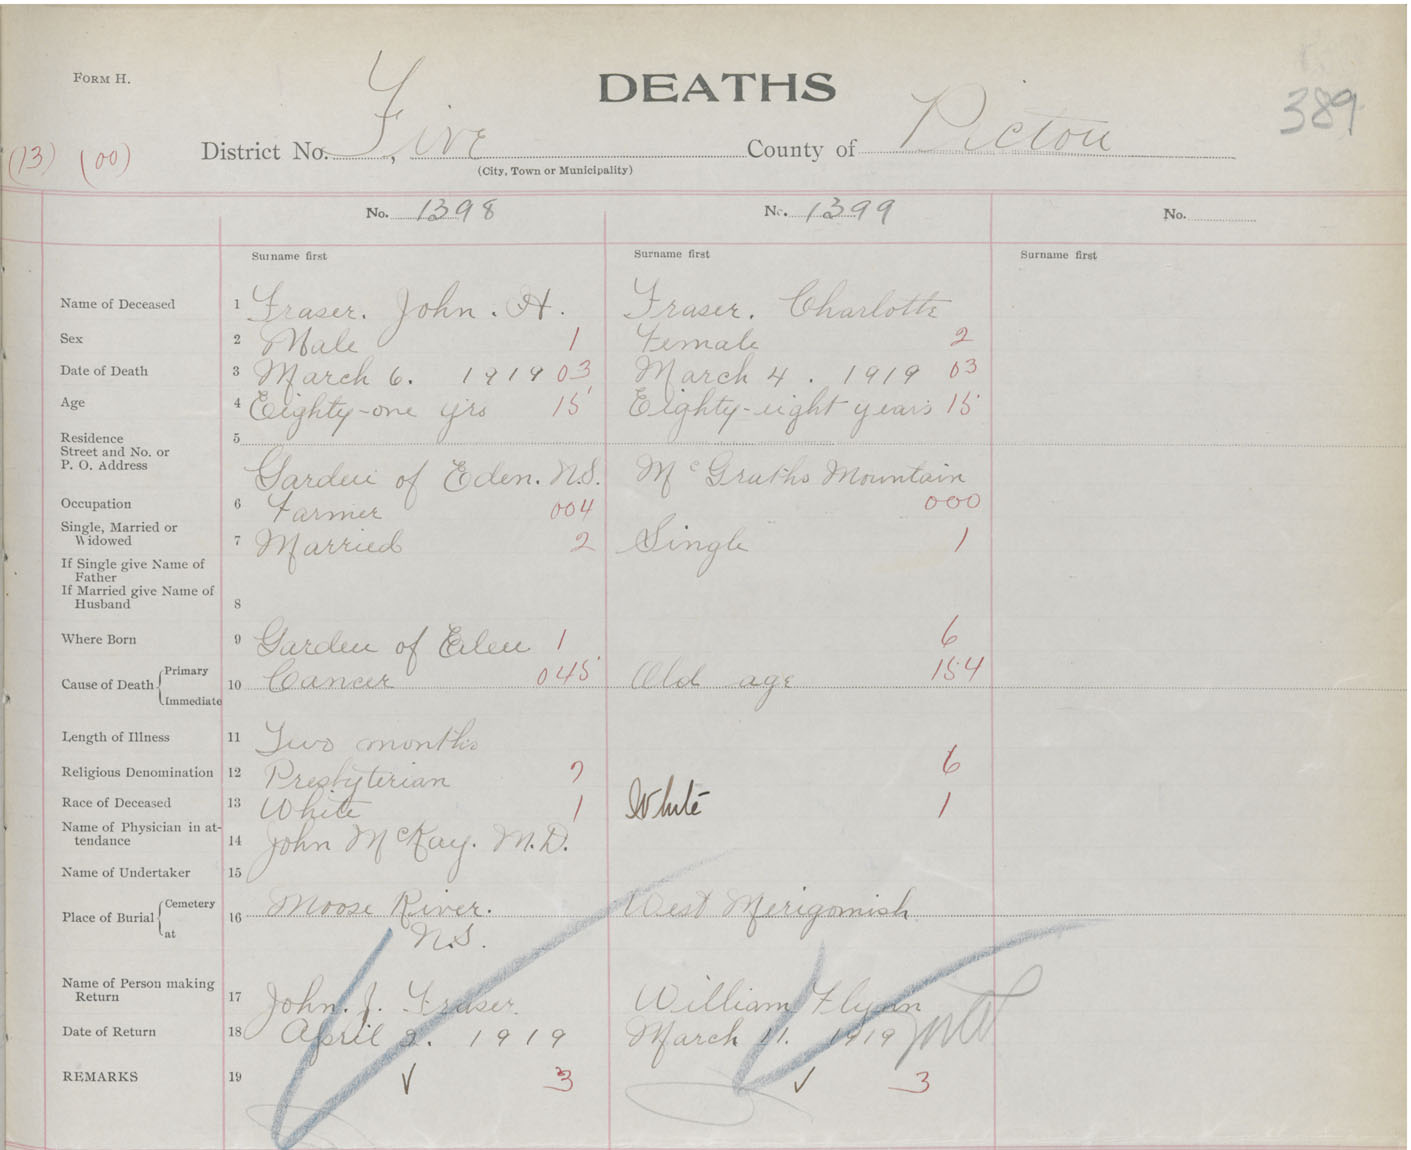 FORM H.
DEATHS
389
(13) (00)
District No. , Five County of Pictou
(City, Town or Municipality)
No. 1398 No. 1399 No.
Surname first Surname first Surname first
Name of Deceased 1 Fraser. John. H. Fraser. Charlotte
Sex 2 Male 1 Female 2
Date of Death 3 March 6. 1919 03 March 4. 1919 03
Age 4 Eighty-one yrs 15 Eighty-eight years 15
Residence 5
Street and No. or
P. O. Address Garden of Eden. N.S. McGraths Mountain
Occupation 6 Farmer 004 000
Single, Married or
Widowed 7 Married 2 Single 1
If Single give Name of
Father
If Married give Name of
Husband 8
Where Born 9 Garden of Eden 1 6
Cause of Death Primary 10 Cancer 045 Old age 154
Immediate
Length of Illness 11 Two months
Religious Denomination 12 Presbyterian 7 6
Race of Deceased 13 White 1 White 1
Name of Physician in at-
tendance 14 John McKay. M.D.
Name of Undertaker 15
Place of Burial Cemetery 16 Moose River. West Merigomish
at N.S.
Name of Person making
Return 17 John. J. Fraser William Flynn
Date of Return 18 April 2. 1919 March 11. 1919
REMARKS 19 ✓ 3 ✓ 3